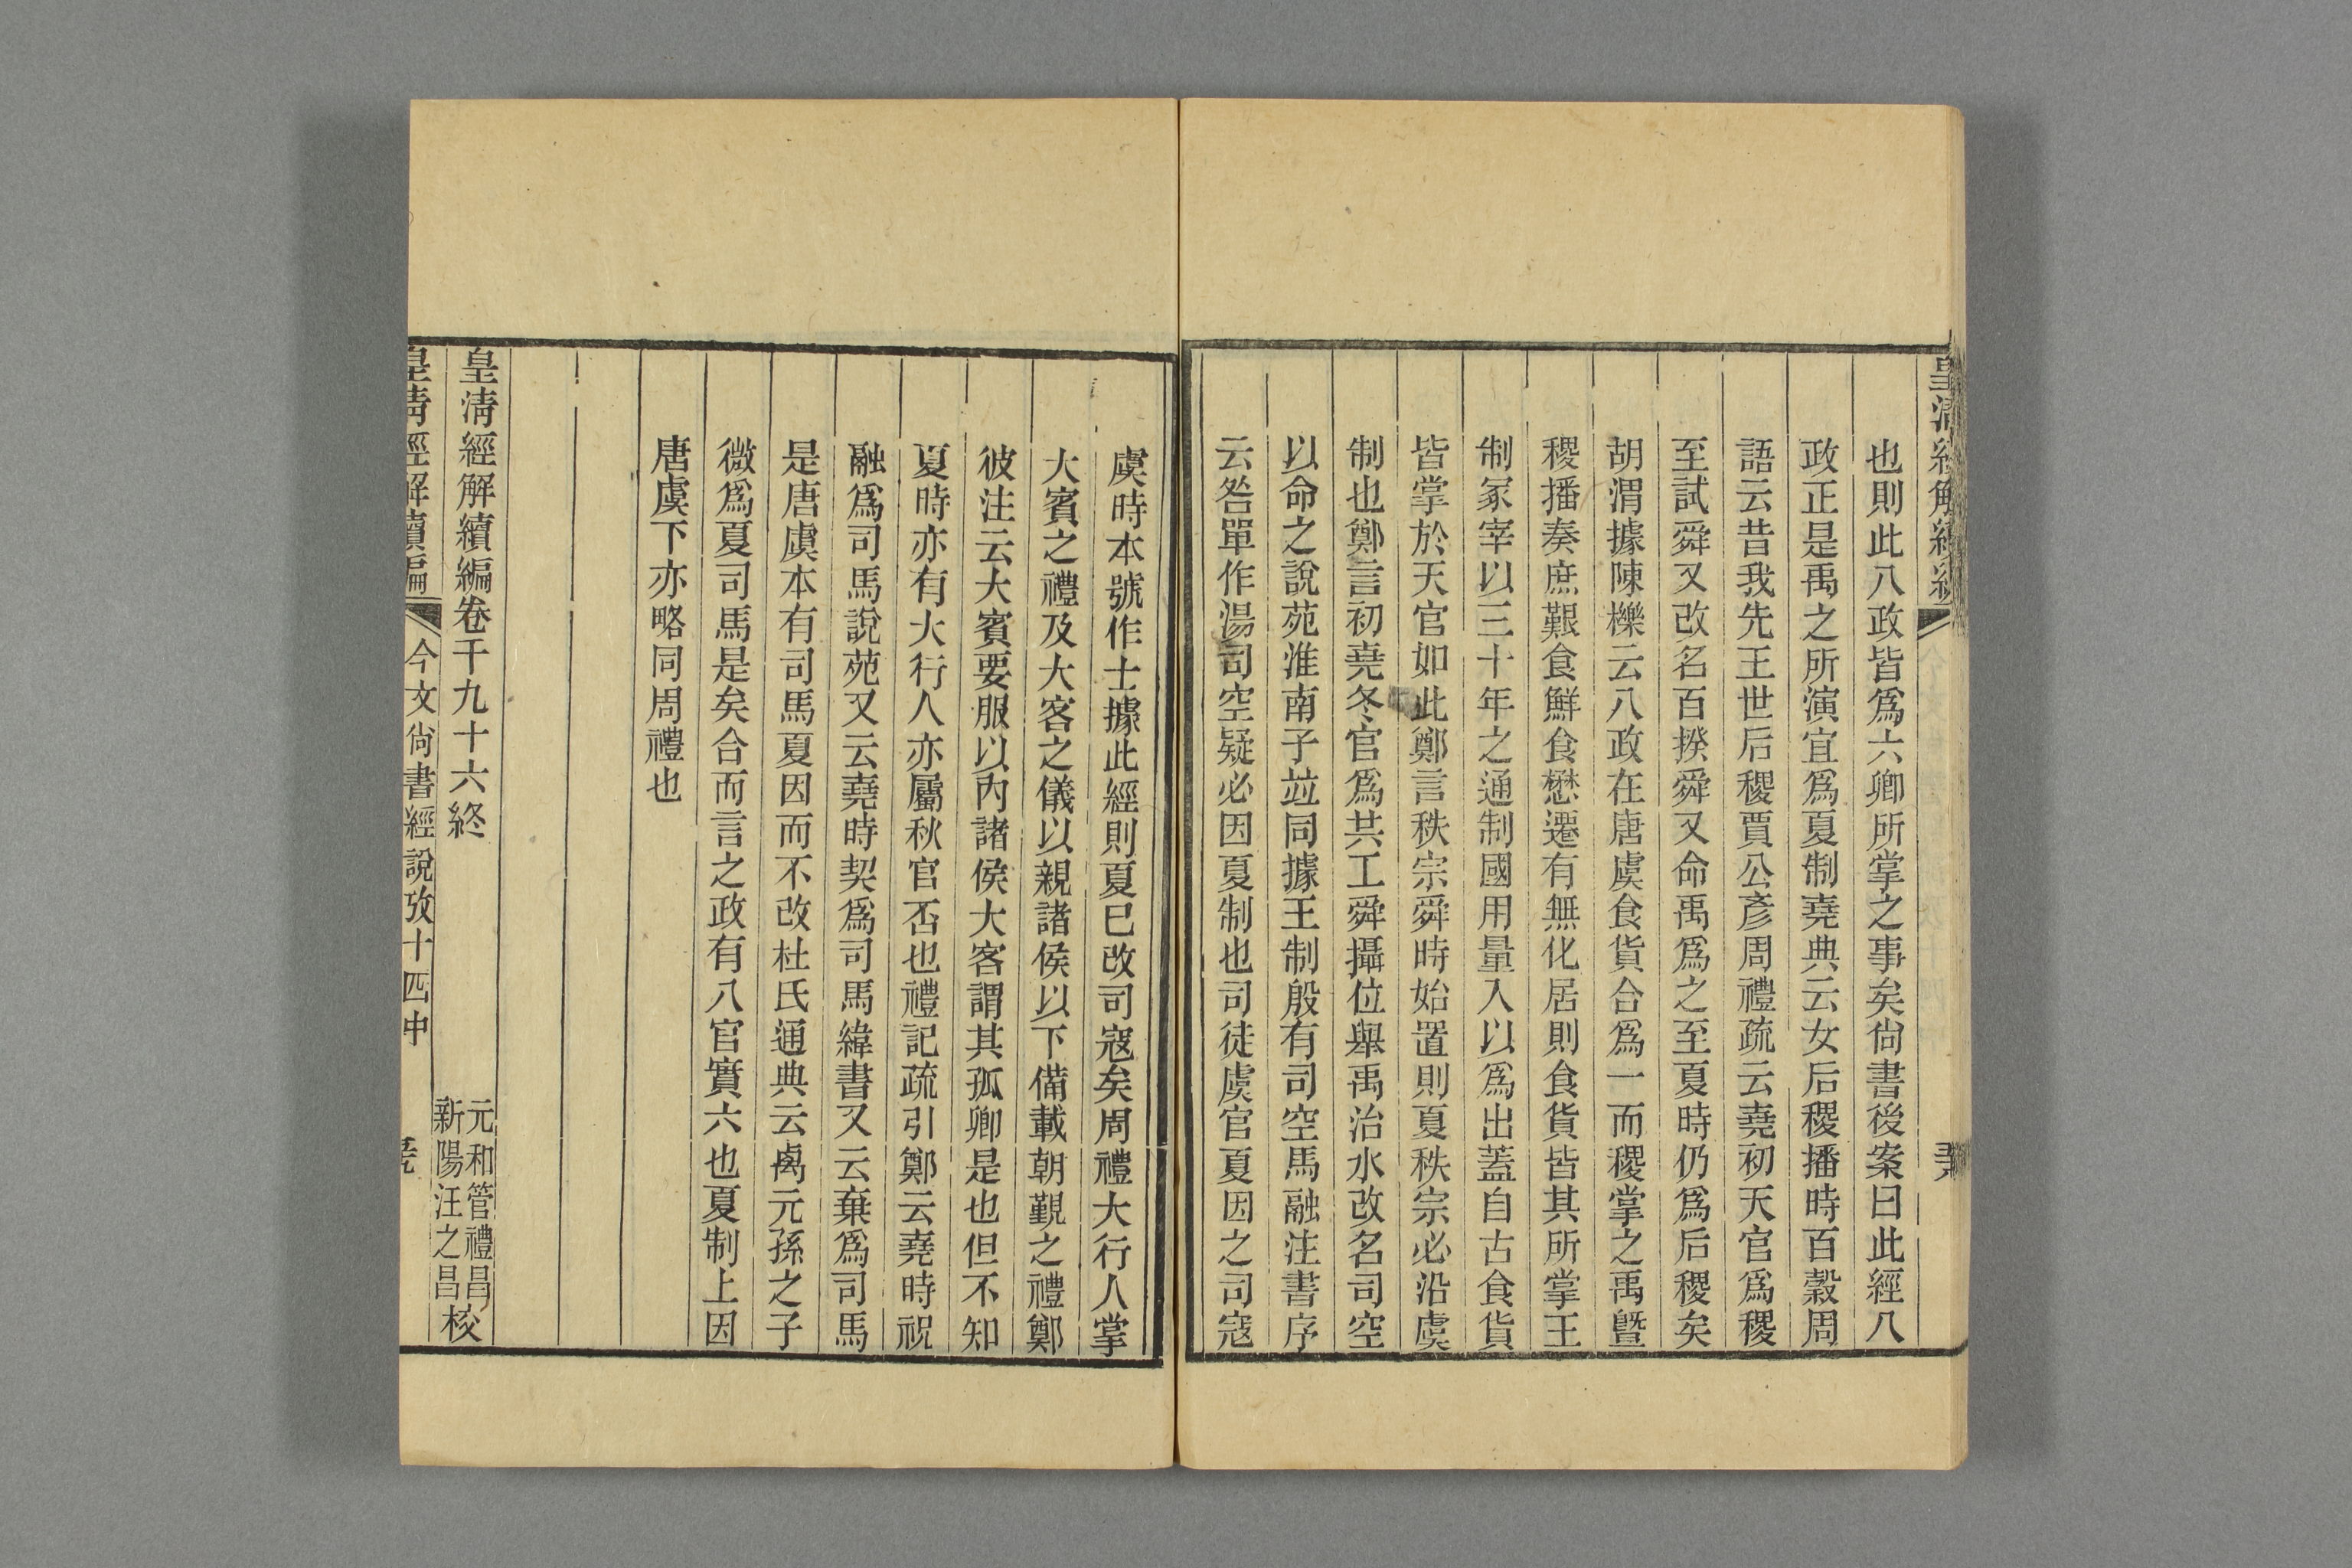 皇清經解續編
也則此八政皆爲六卿所掌之事矣尙書後案曰此經八
政正是禹之所演宜爲夏制堯典云女后稷播時百穀周
語云昔我先王世后稷賈公彥周禮疏云堯初天官爲稷
至試舜又改名百揆舜又命禹爲之至夏時仍爲后稷矣
胡渭據陳櫟云八政在唐虞食貨合爲一而稷掌之禹曁
稷播奏庶艱食鮮食懋遷有無化居則食貨皆其所掌王
制冢宰以三十年之通制國用量入以爲出蓋自古食貨
皆掌於天官如此鄭言秩宗舜時始置則夏秩宗必沿虞
制也鄭言初堯冬官爲共工舜攝位舉禹治水改名司空
以命之說苑淮南子竝同據王制殷有司空馬融注書序
云咎單作湯司空疑必因夏制也司徒虞官夏因之司寇
虞時本號作士據此經則夏已改司寇矣周禮大行人掌
大賓之禮及大客之儀以親諸侯以下備載朝覲之禮鄭
彼注云大賓要服以內諸侯大客謂其孤卿是也但不知
夏時亦有大行人亦屬秋官否也禮記疏引鄭云堯時祝
融爲司馬說苑又云堯時契爲司馬緯書又云棄爲司馬
是唐虞本有司馬夏因而不改杜氏通典云禼元孫之子
微爲夏司馬是矣合而言之政有八官實六也夏制上因
唐虞下亦略同周禮也
皇清經解續編卷千九十六終
元和管禮昌
新陽汪之昌校
皇清經解續編
今文尙書經說攷十四中